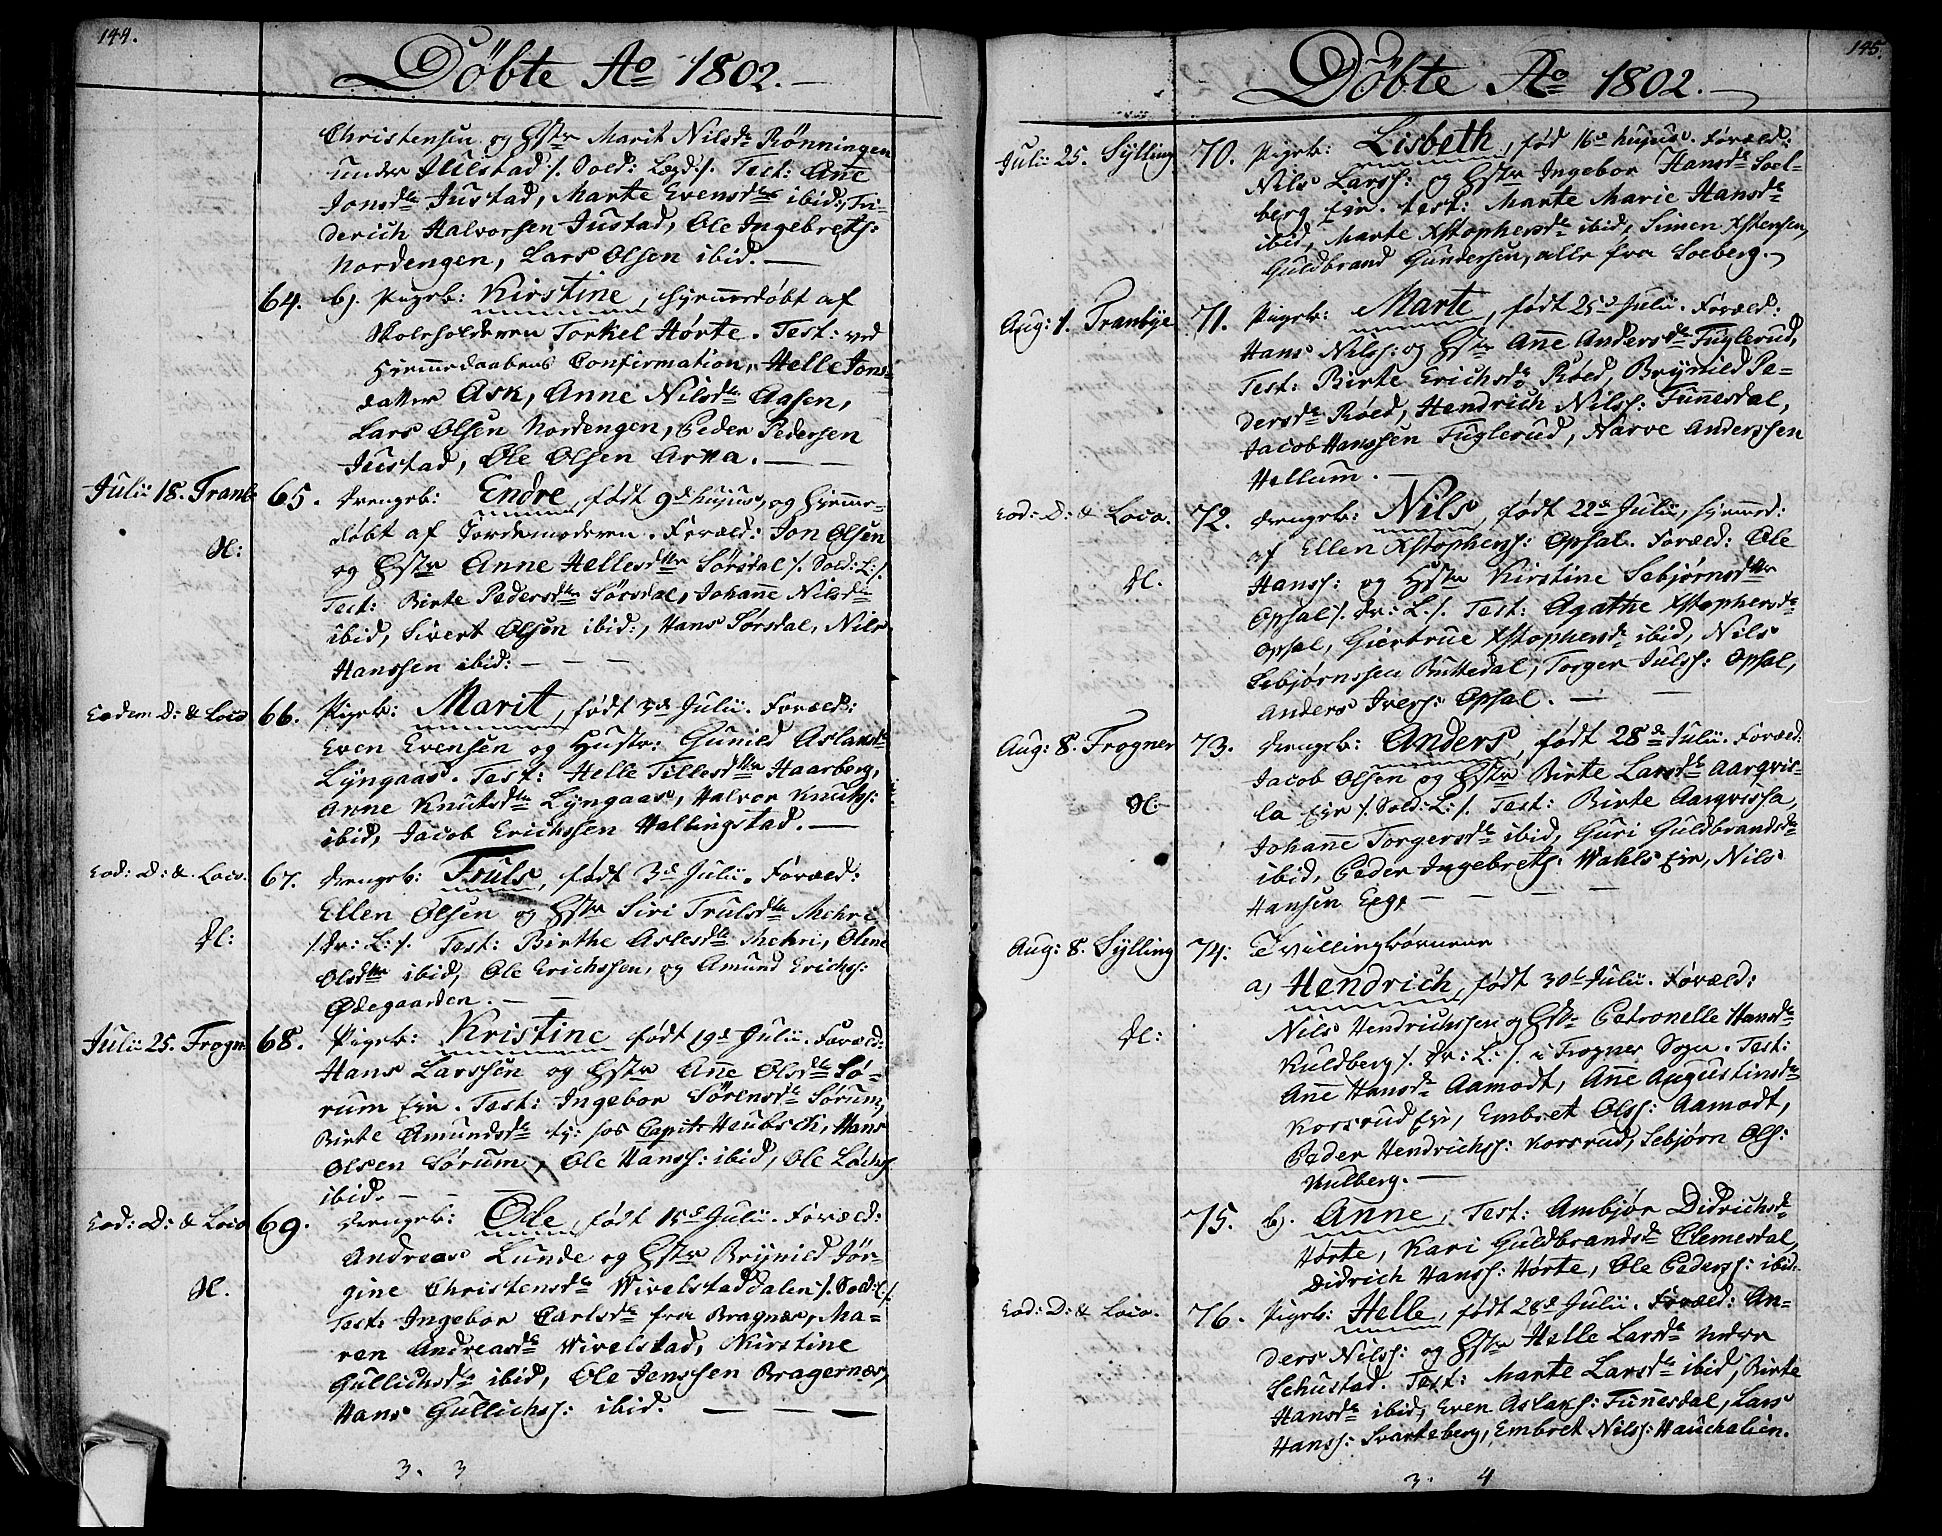 144.
Döbte Ao 1802.
Christensen og Hstr Marit Nilsdr Rönningen
under Julstad /. Sold: Legd: /. Test: Ane
Jonsdr Justad, Marte Evensdr ibid:, Fri-
derich Halvorsen Justad, Ole Ingebrets:
Nordengen, Lars Olsen ibid. —
64. b). Pigeb: Kirstine, hjemmedöbt af
Skoleholderen Torkel Hörte. Test: ved
Hjemmedaabens Confirmation, Helle Jons-
datter Ask, Anne Nilsdr Aasen,
Lars Olsen Nordengen, Peder Pedersen
Justad, Ole Olsen Arna. — —
Julii 18. Tranb: 65. Drengeb: Endre, födt 9de hujus, og hjemme-
döbt af Jordemoderen. Foræld: Jon Olsen
og Hstr Anne Hellesdtr Sörsdal /. Sold: L: /.
Test: Birte Pedersdtr Sörsdal, Johanne Nilsdr
ibid, Sivert Olsen ibid:, Hans Sörsdal, Nils
Hanssen ibid: — — —
Eodem D: & Loco 66. Pigeb: Marit, födt 3de Julii. Foræld:
Even Evensen og Hustr: Gunild Aslaksdr
Lyngaas. Test: Helle Tillesdtr Haarberg,
Anne Knutsdtr Lyngaas, Halvor Knuts:
ibid, Jacob Erichssen Hallingstad. —
Eod: D: & Loco. 67. Drengeb: Truls, födt 3de Julii. Foræld:
Ellen Olsen og Hstr Siri Trulsdtr Mehre
/. Dr: L: /. Test: Birthe Aslesdtr Mehri, Olene
Olsdtr ibid, Ole Erichssen, og Amund Erichs:
Ödegaarden. — —
Julii 25. Frogn: 68. Pigeb: Kristine födt 19de Julii. Foræld:
Hans Larssen og Hstr Ane Olsdtr Sö-
rum Eje. Test: Ingebor Sörensdr Sörum,
Birte Amundsdr tj: hos Capit: Heubsch, Hans
Olsen Sörum, Ole Hanss: ibid, Ole Lochs:
ibid. — —
Eod: D: & Loco 69. Drengeb: Ole, födt 15de Julii. Foræld:
Andreas Lunde og Hstr Brynild Jör-
gine Christensdr Wivelstaddalen /. Sold: L: /.
Test: Ingebor Carlsdr fra Bragnæs, Ma-
ren Andreasdr Wivelstad, Kirstine
Gullichsdr ibid, Ole Jenssen Bragernæs,
Hans Gullichs: ibid. — — —
3. 3
145.
Döbte Ao 1802.
Julii 25. Sylling 70. Pigeb: Lisbeth, föd 16de hujus. Foræld:
Nils Larss: og Hstr Ingebor Hansdr Soel-
berg Eje. Test: Marte Marie Hansdr
ibid, Marte Xstophersdr ibid, Simen Xstensen,
Guldbrand Gundersen, alle fra Soeberg. —
Aug: 1. Tranbye 71. Pigeb: Marte, födt 25de Julii. Foræld:
Hans Nilss: og Hstr Ane Andersdr Fuglerud,
Test: Birte Erichsdr Röed, Brynild Pe-
dersdr Röed, Hendrich Nilss: Funnesdal,
Jacob Hanssen Fuglerud, Narve Anderssen
Hellum. —
Eod: D: & Loco. 72. Drengeb: Nils, födt 22de Julii, hjemmed:
af Ellen Xstophers: Opsal. Foræld: Ole
Hanss: og Hstr Kirstine Sebjörnsdtr
Opsal /. Dr: L: /. Test: Agathe Xstophersdr
Opsal, Giertrue Xstophersdr ibid, Nils
Sebjörnssen Buttedal, Torger Julss: Opsal,
Anders Ivers: Opsal. — —
Aug: 8. Frogner 73. Drengeb: Anders, födt 28de Julii. Foræld:
Jacob Olsen og Hstr Birte Larsdr Aarqvis-
la Eje /. Sold: L: /. Test: Birte Aarqvisla,
Johanne Torgersdr ibid, Guri Guldbrandsdr
ibid, Peder Ingebrets: Wahls Eje, Nils
Hansen Eeg, — — — —
Aug: 8. Sylling 74. Tvillingbørnene
a) Hendrich, födt 30te Julii. Foræld:
Nils Hendrichssen og Hstr Petronelle Hansdr
Kuldberg /. Dr: L: /. i Frogner Sogn. Test:
Ane Hansdr Aamodt, Ane Augustinsdr
Korsrud Eje, Embret Olss: Aamodt,
Peder Hendrichs: Korsrud, Sebjörn Ols:
Kulberg. —
75. b). Anne, Test: Ambjör Didrichsdr
Hörte, Kari Guldbrandsdr Clemesdal,
Didrich Hanss: Hörte, Ole Peders: ibid:
Eod: D: & Loco. 76. Pigeb: Helle, födt 28de Julii. Foræld: An-
ders Nilss: og Hstr Helle Larsdr nedre
Schustad. Test: Marte Larsdr ibid, Birte
Hansdr ibid, Even Aslaks: Funnesdal, Lars
Hanss: Svarteberg, Embret Nilss: Hauchelien.
3. 4